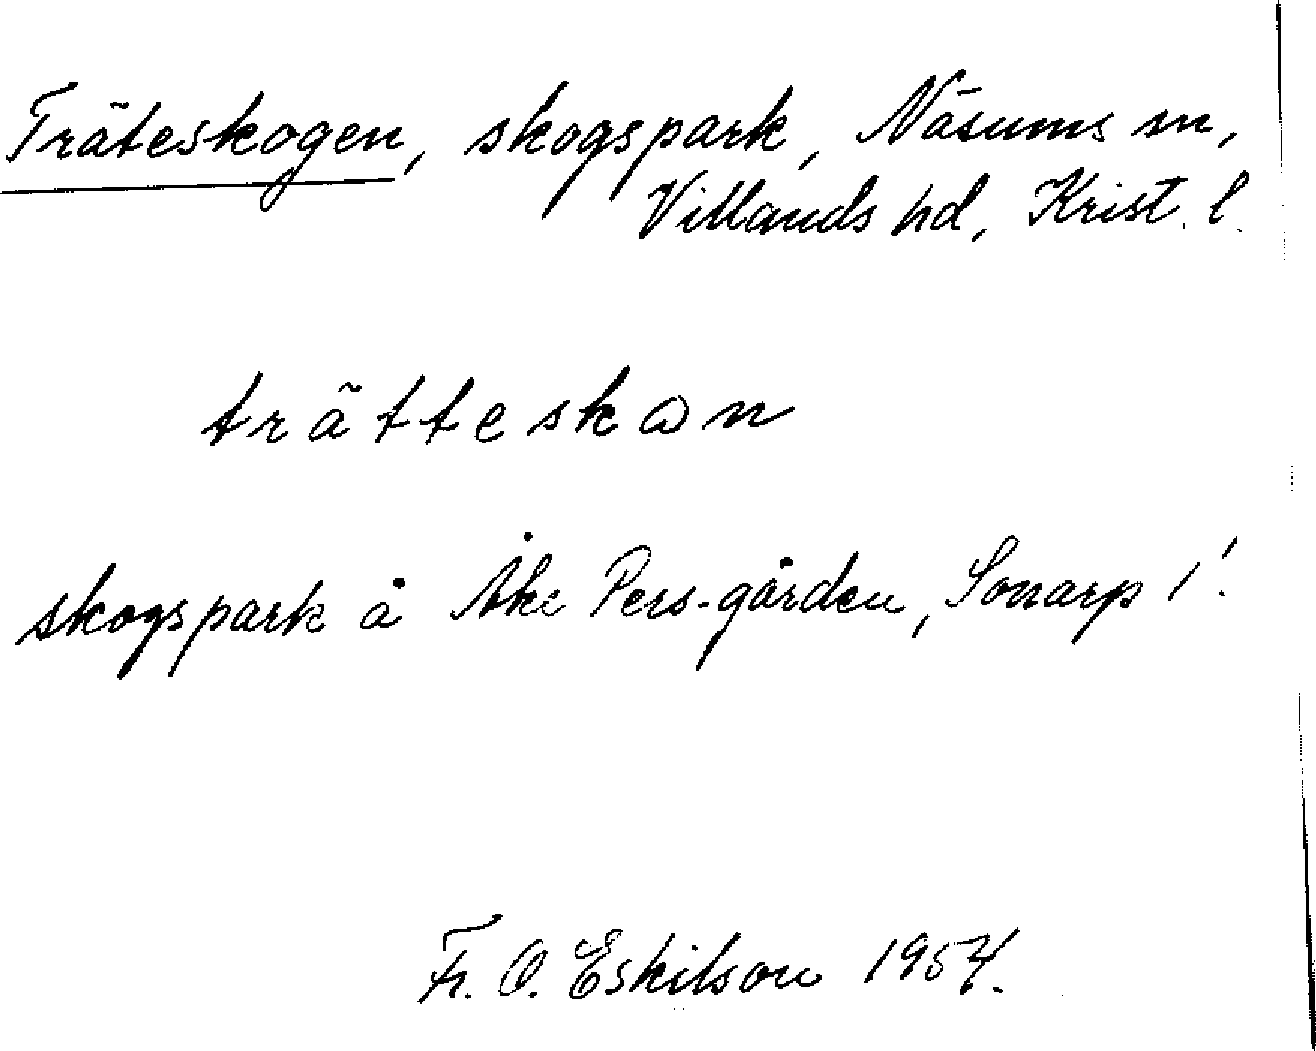 Träteskogen, skogspark, Näsums sn,
Villands hd, Krist. l.
trätteskɷn
skogspark å Åke Pers-gården, Sonarp 1!
Fr. O. Eskilson 1954.